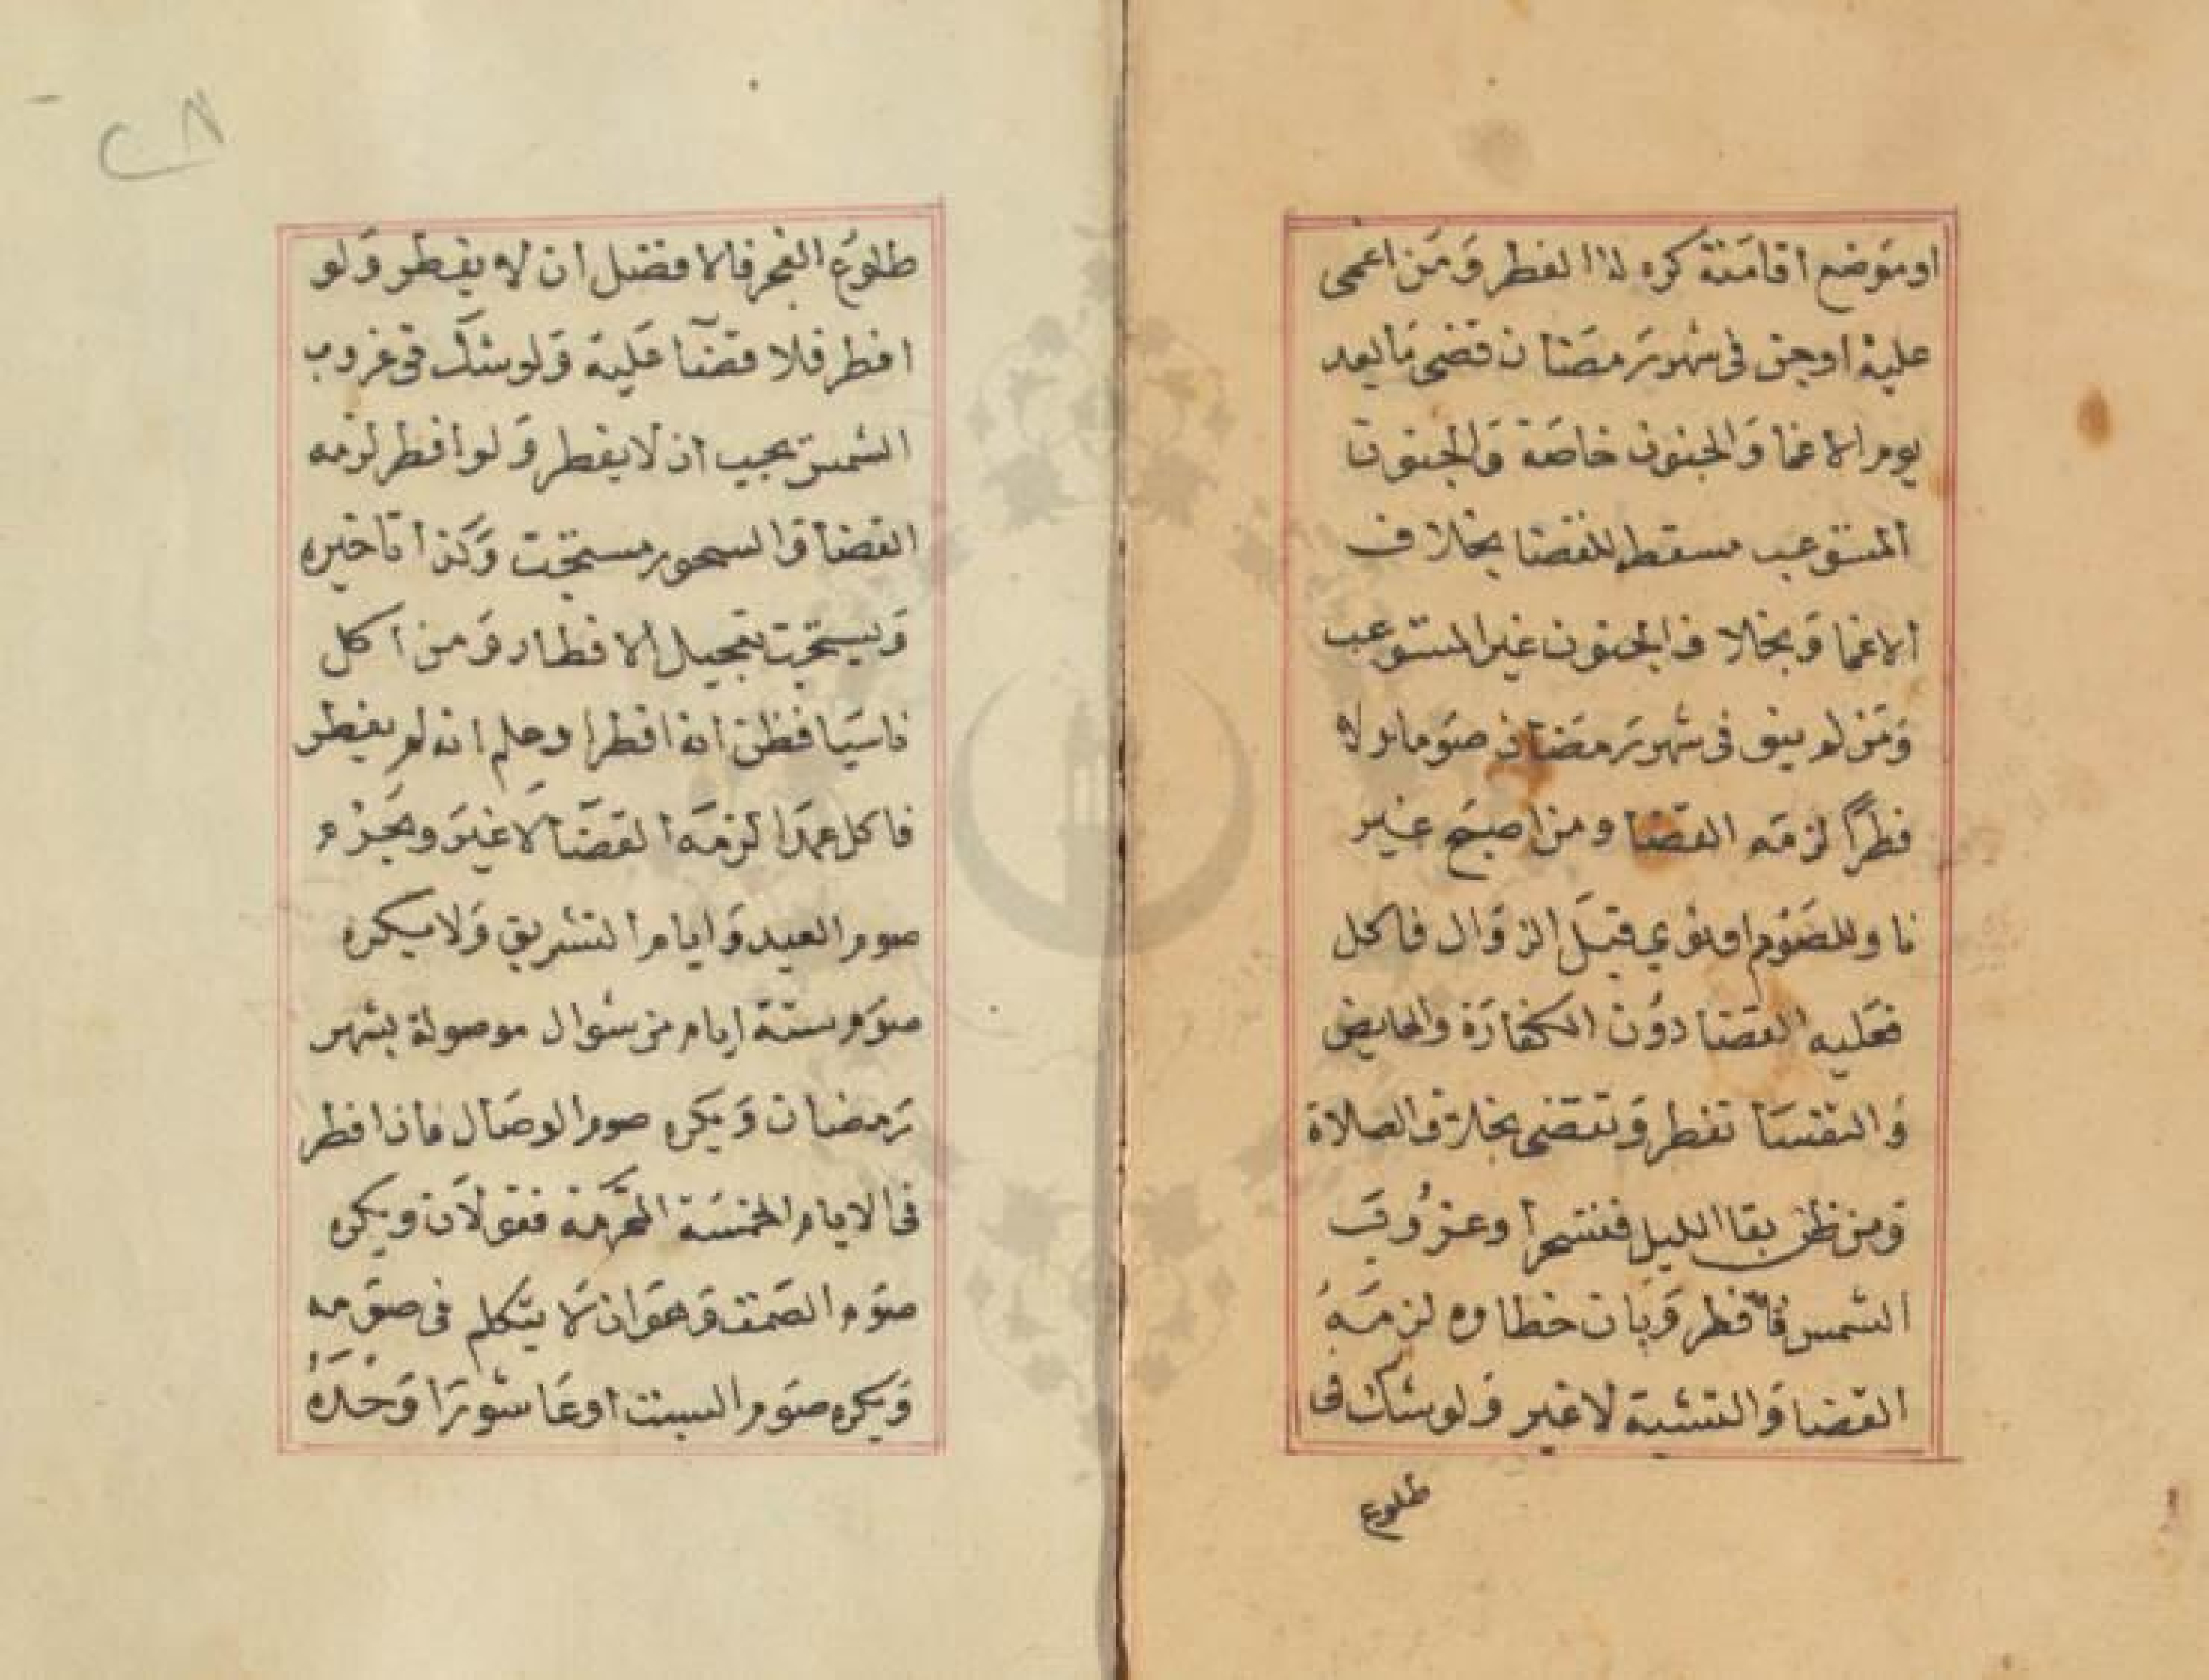 او موضع اقامته كره له الفطر وَمَن اغمى
عليه او جن فى شهر رَمضان قضى مَا بعد
يوم الاغما وَالجنون خاصَة وَالجنون
المستوعب مسقط للقضا بخلاف
الاغما وَبخلاف الجنون غير المستوعب
وَمَن لم ينو فى شهر رَمضان صَوما ولا
فطراً لزمَه القضا ومن اصبَح غير
نا و للصَوْم او نوي قبَل الزوَال فاكل
فعَليه القضا دوُن الكفارَة والحايض
وَالنفسَا تفطر وَتقضى بخلاف الصلاة
وَمن ظن بقا الليل فتسحر أ وغرُوبَ
الشمس فأفطر وَبَان خطاوه لزمَهُ
القضا وَالتشبه لا غير وَلو شك فى
طلوع
٢٨
طلوُع الفجر فالافضل ان لا يفطر وَلو
افطر فلا قضآ عَليه وَلو شكَ فى غروب
الشمس يجب ان لا يفطر وَلو افطر لزمه
القضا وَالسحور مستحَب وَكذا تاخيره
وَيستحَب تعجيل الافطار وَمن اكل
ناسيَا فظن انه افطر ا وعلم انه لم يفطر
فاكل عمدَا لزمَه القضَا لا غيرَ ويحَرْم
صوم العيد وَايام التشريق وَلا يكره
صوَم ستة ايام من شوال موصولة بشهر
رَمضان وَيكره صوم الوصَال فان افطر
فى الايام الخمسَة المحرمَة فقولَان ويكره
صوَم الصَمت وَهوَ ان لَا يتكلم فى صوَمه
وَيكره صَوم السبت او عَاشورَا وَحْدَهُ